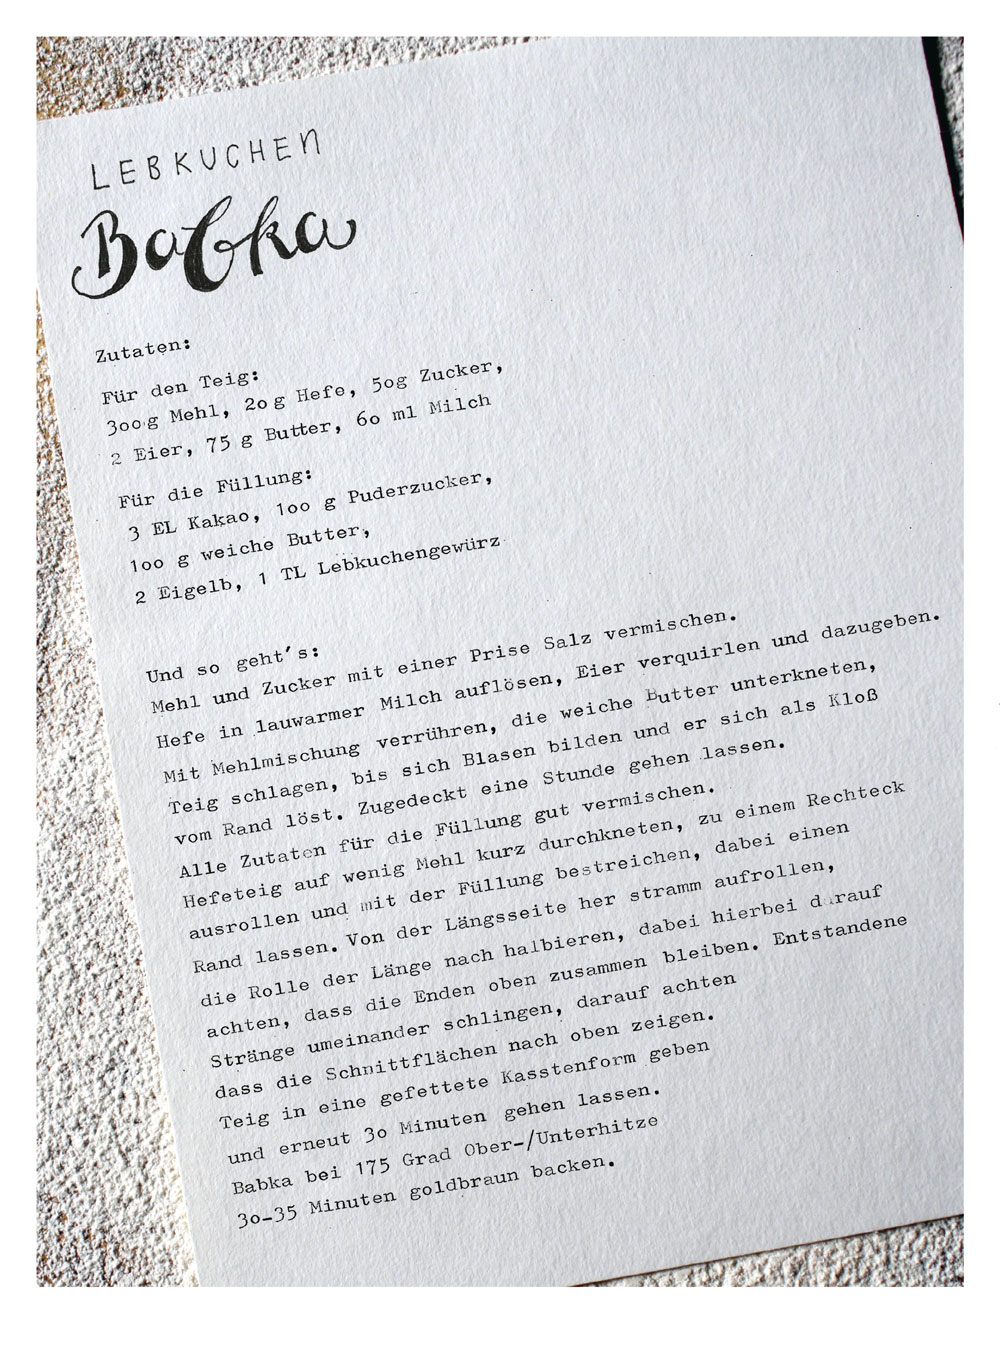 LEBKUCHEN
Babka
Zutaten:
Für den Teig:
300g Mehl, 20g Hefe, 50g Zucker,
2 Eier, 75 g Butter, 60 ml Milch
Für die Füllung:
3 EL Kakao, 100 g Puderzucker,
100 g weiche Butter,
2 Eigelb, 1 TL Lebkuchengewürz
Und so geht's:
Mehl und Zucker mit einer Prise Salz vermischen.
Hefe in lauwarmer Milch auflösen, Eier verquirlen und dazugeben.
Mit Mehlmischung verrühren, die weiche Butter unterkneten,
Teig schlagen, bis sich Blasen bilden und er sich als Kloß
vom Rand löst. Zugedeckt eine Stunde gehen lassen.
Alle Zutaten für die Füllung gut vermischen.
Hefeteig auf wenig Mehl kurz durchkneten, zu einem Rechteck
ausrollen und mit der Füllung bestreichen, dabei einen
Rand lassen. Von der Längsseite her stramm aufrollen,
die Rolle der Länge nach halbieren, dabei hierbei darauf
achten, dass die Enden oben zusammen bleiben. Entstandene
Stränge umeinander schlingen, darauf achten
dass die Schnittflächen nach oben zeigen.
Teig in eine gefettete Kasstenform geben
und erneut 30 Minuten gehen lassen.
Babka bei 175 Grad Ober-/Unterhitze
30-35 Minuten goldbraun backen.